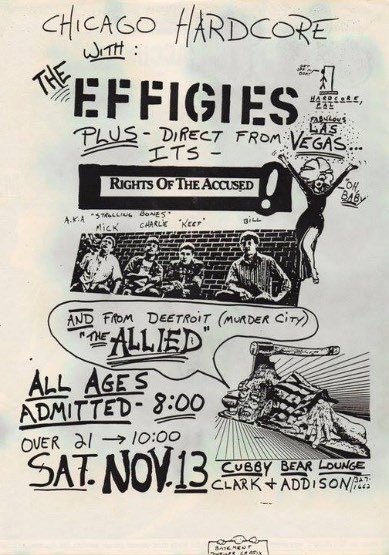 CHICAGO HARDCORE
WITH:
THE
EFFIGIES
HARDCORE,
PAL
PLUS - DIRECT FROM
FABULOUS
LAS
VEGAS...
ITS -
RIGHTS OF THE ACCUSED!
"OH,
BABY"
A.K.A "STROLLING BONES"
MICK CHARLIE "KEEF" BILL
AND FROM DEETROIT (MURDER CITY)
"THE ALLIED"
ALL AGES
ADMITTED - 8:00
OVER 21 → 10:00
SAT. NOV. 13
CUBBY BEAR LOUNGE
CLARK + ADDISON/327-
1662
BATEMENT